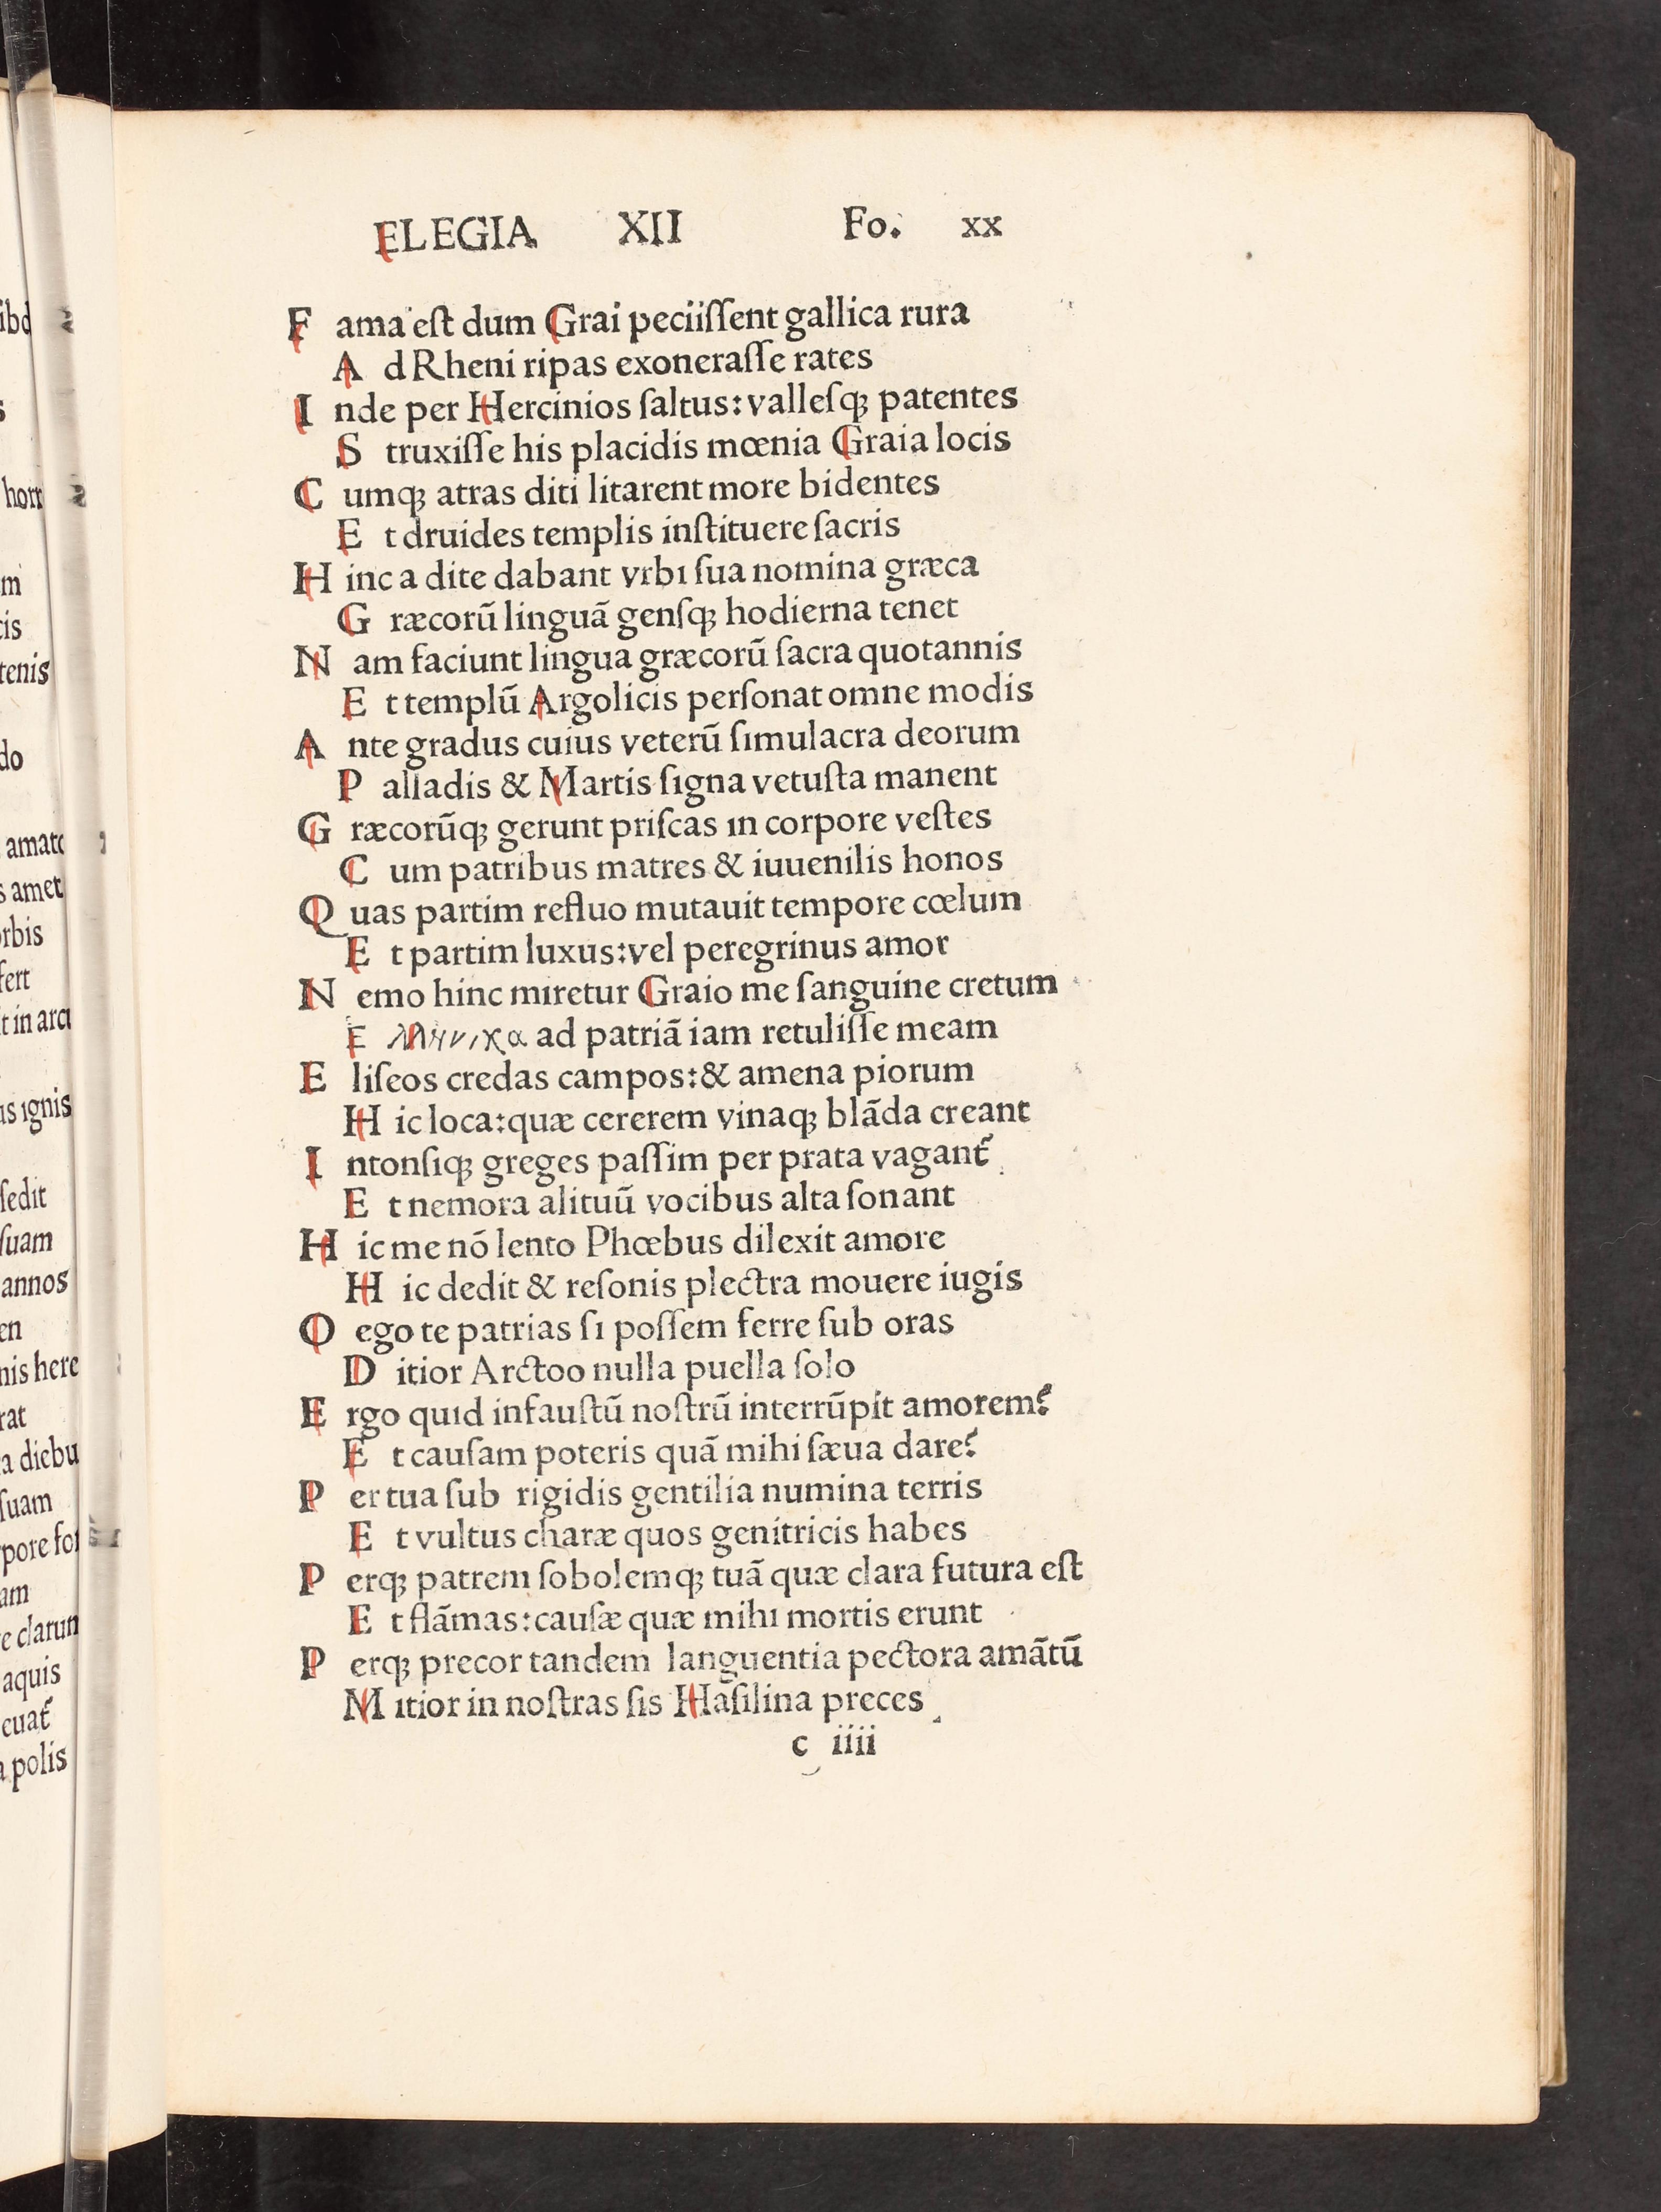 ELEGIA XII Fo. xx
F ama est dum Grai peciiſſent gallica rura
A d Rheni ripas exoneraſſe rates
I nde per Hercinios ſaltus: valleſqꝫ patentes
S truxiſſe his placidis mœnia Graia locis
C umqꝫ atras diti litarent more bidentes
E t druides templis inſtituere ſacris
H inc a dite dabant vrbi ſua nomina græca
G ræcorū linguā genſqꝫ hodierna tenet
N am faciunt lingua græcorū ſacra quotannis
E t templū Argolicis perſonat omne modis
A nte gradus cuius veterū ſimulacra deorum
P alladis & Martis ſigna vetuſta manent
G ræcorūqꝫ gerunt priſcas in corpore veſtes
C um patribus matres & iuuenilis honos
Q uas partim refluo mutauit tempore cœlum
E t partim luxus: vel peregrinus amor
N emo hinc miretur Graio me ſanguine cretum
E λληνικα ad patriā iam retuliſſe meam
E liſeos credas campos: & amena piorum
H ic loca: quæ cererem vinaqꝫ blāda creant
I ntonſiqꝫ greges paſſim per prata vagant᷑
E t nemora alituū vocibus alta ſonant
H ic me nō lento Phœbus dilexit amore
H ic dedit & reſonis plectra mouere iugis
O ego te patrias ſi poſſem ferre ſub oras
D itior Arctoo nulla puella ſolo
E rgo quid infauſtū noſtrū interrūpit amorem?
E t cauſam poteris quā mihi ſæua dare?
P er tua ſub rigidis gentilia numina terris
E t vultus charæ quos genitricis habes
P erqꝫ patrem ſobolemqꝫ tuā quæ clara futura eſt
E t flāmas: cauſæ quæ mihi mortis erunt
P erqꝫ precor tandem languentia pectora amātū
M itior in noſtras ſis Haſilina preces
c iiii